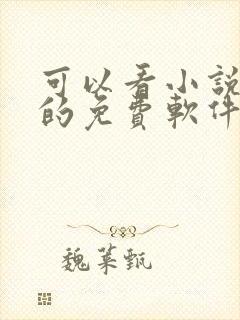 可以看小說
的免費軟件
魏菜甄